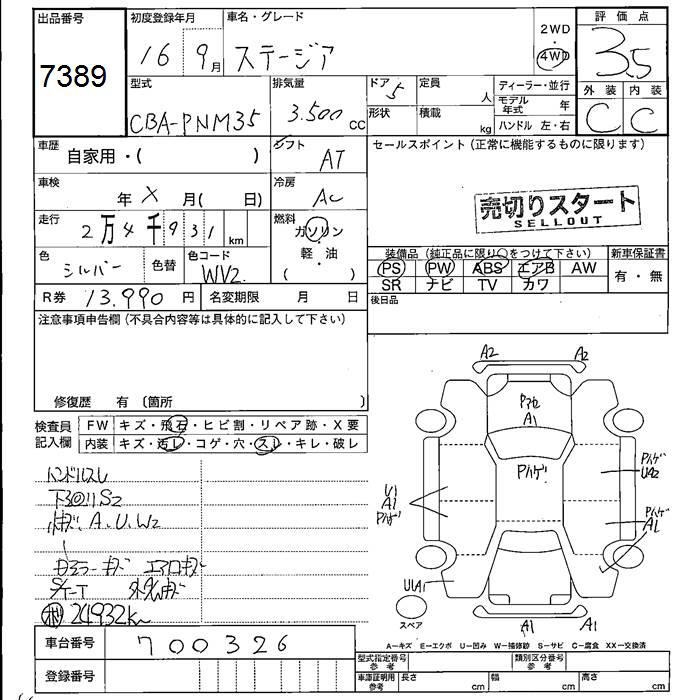 出品番号 初度登録年月 車名・グレード 2WD 評価点
7389 16 9月 ステージア 4WD 3.5
型式 排気量 ドア 5 定員 人 ディーラー・並行 外装 内装
CBA-PNM35 3.500cc 形状 積載 kg モデル年式 年 C C
ハンドル 左・右
車歴 自家用・( ) シフト AT セールスポイント(正常に機能するものに限ります)
車検 年 X 月( 日) 冷房 AC
売切りスタート
SELLOUT
走行 2万4千931km 燃料 ガソリン・軽油 ( )
色 シルバー 色替 色コード WV2 装備品(純正品に限り○をつけて下さい) 新車保証書
PS PW ABS エアB AW 有・無
SR ナビ TV カワ
R券 13.990円 名変期限 月 日 後日品
注意事項申告欄(不具合内容等は具体的に記入して下さい)
修復歴 有(箇所 )
検査員記入欄 FW キズ・飛石・ヒビ割・リペア跡・X要
内装 キズ・汚レ・コゲ・穴・スレ・キレ・破レ
A2 A2
A1
Pハゲ
Pハゲ
UA2
U1
A1
Pハゲ
Pハゲ
A1
ハンドルスレ
下回りS2
A.U.W2
24932km
UA1
スペア
A1 A1
A-キズ E-エクボ U-凹み W-補修跡 S-サビ C-腐食 XX-交換済
車台番号 700326
型式指定番号 参考 類別区分番号 参考
登録番号
車庫証明用 参考 長さ cm 幅 cm 高さ cm